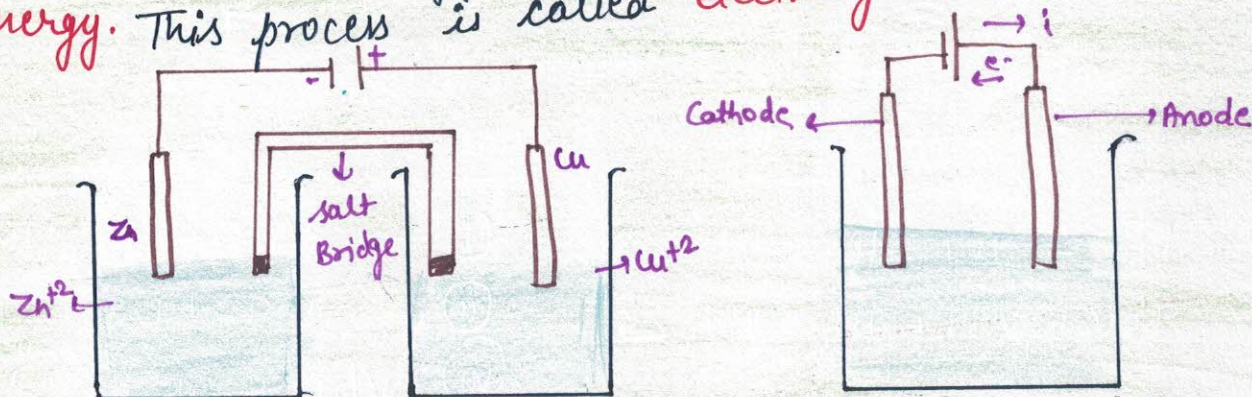 nergy. This process is called
- +
Zn
Zn+2
salt
Bridge
Cu
Cu+2
→ i
e-
Cathode
Anode